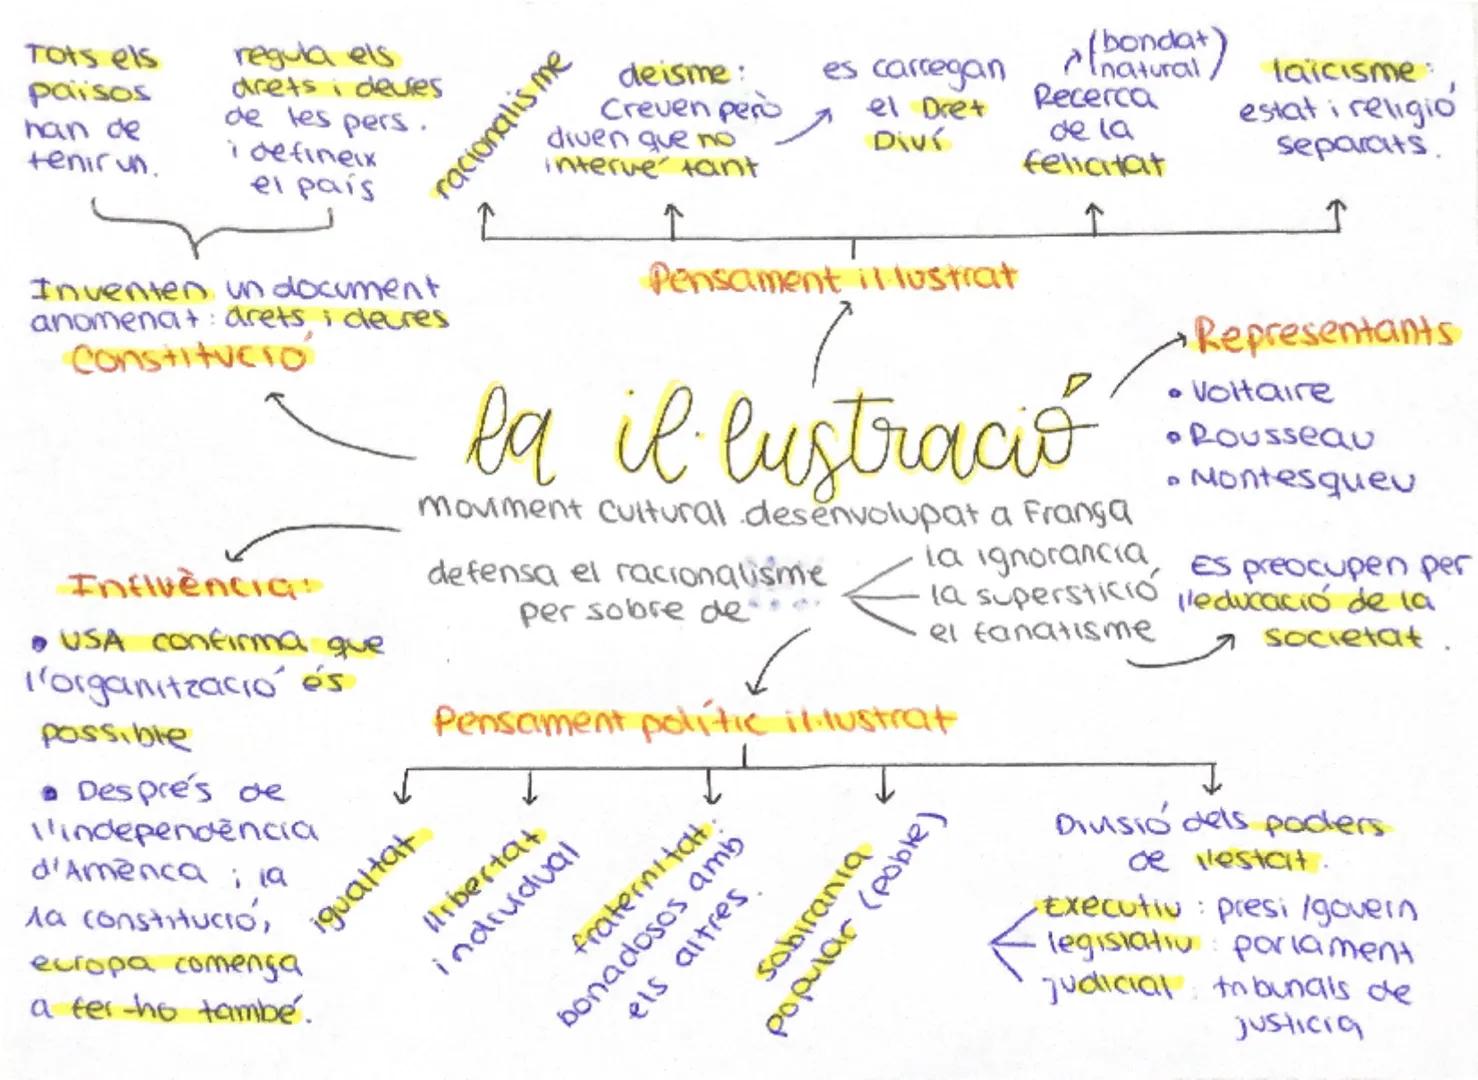 Tots els
països
han de
tenir un.
regula els
drets i deures
de les pers.
i defineix
el país
Inventen un document
anomenat: drets i deures
Constitució
racionalisme
deisme:
Creuen però
diuen que no
intervé tant
es carregan
el Dret
Diví
(bondat
natural)
Recerca
de la
felicitat
laïcisme:
estat i religió
separats.
Pensament il·lustrat
Representants
• Voltaire
• Rousseau
• Montesqueu
la il·lustració
moviment cultural desenvolupat a França
defensa el racionalisme
per sobre de....
la ignorancia
la superstició
el fanatisme
Es preocupen per
l'educació de la
societat.
Influència:
• USA confirma que
l'organització és
possible
• Després de
l'independència
d'Amèrica; la
1a constitució,
europa comença
a fer-ho també.
Pensament polític il·lustrat
igualtat
llibertat
individual
fraternitat:
bonadosos amb
els altres.
sobirania
popular (poble)
Divisió dels poders
de l'estat.
Executiu: presi/govern
legislatiu: parlament
judicial: tribunals de
justicia